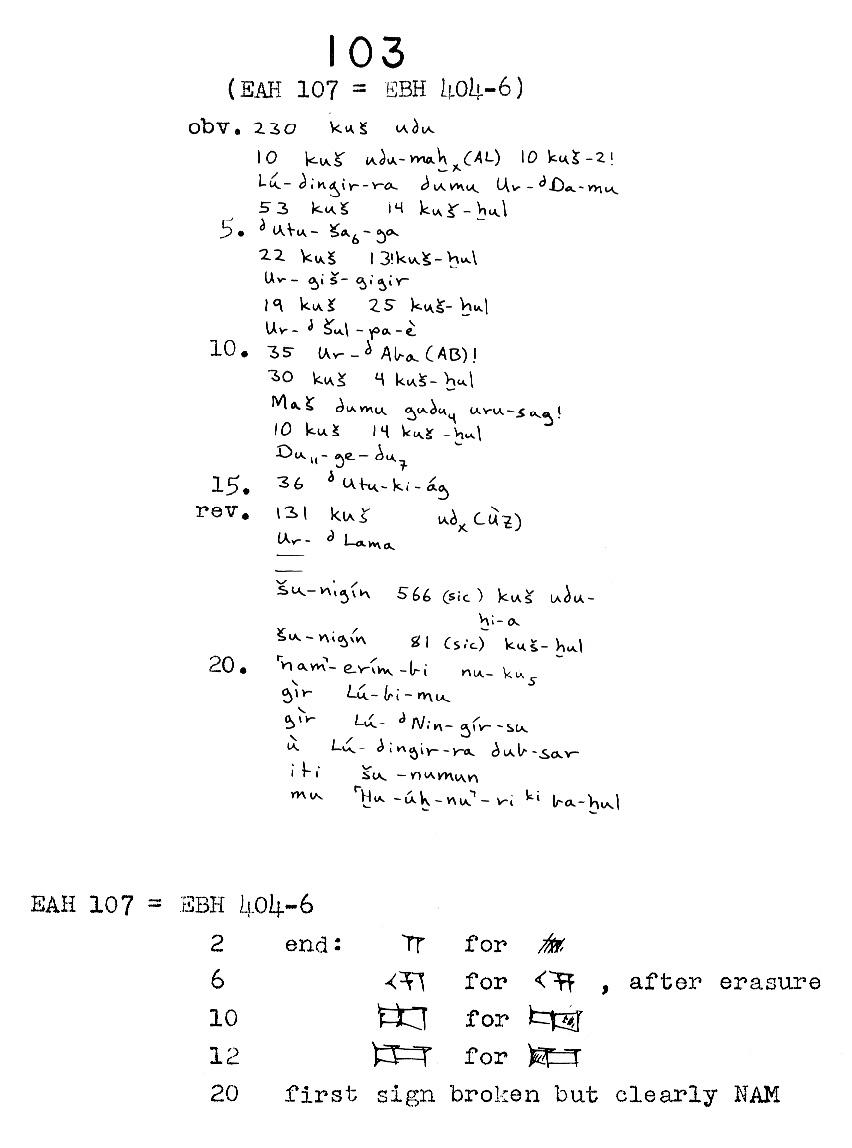 103
(EAH 107 = EBH 404-6)
obv. 230 kuš udu
10 kuš udu-maḫₓ(AL) 10 kuš-2!
Lú-dingir-ra dumu Ur-ᵈDa-mu
53 kuš 14 kuš-ḫul
5. ᵈUtu-ša₆-ga
22 kuš 13!kuš-ḫul
Ur-giš-gigir
19 kuš 25 kuš-ḫul
Ur-ᵈŠul-pa-è
10. 35 Ur-ᵈAba(AB)!
30 kuš 4 kuš-ḫul
Maš dumu gudu₄ uru-sag!
10 kuš 14 kuš-ḫul
Du₁₁-ge-du₇
15. 36 ᵈUtu-ki-ág
rev. 131 kuš udₓ(ÙZ)
Ur-ᵈLama
šu-nigín 566 (sic) kuš udu-
ḫi-a
šu-nigín 81 (sic) kuš-ḫul
20. ⌜nam⌝-erím-bi nu-ku₅
gìr Lú-bi-mu
gìr Lú-ᵈNin-gír-su
ù Lú-dingir-ra dub-sar
iti šu-numun
mu ⌜Ḫu-úḫ-nu⌝-ri ᵏⁱ ba-ḫul
EAH 107 = EBH 404-6
2 end: for
6 for , after erasure
10 for
12 for
20 first sign broken but clearly NAM